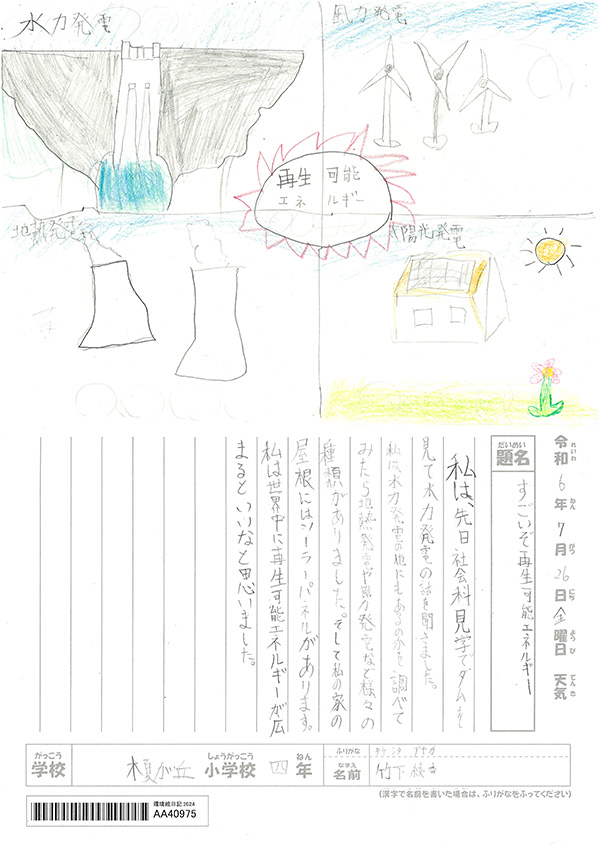 水力発電
風力発電
再生可能
エネルギー
地熱発電
太陽光発電
令和6年7月26日金曜日 天気
れいわ ねん がつ にち ようび てんき
だいめい
題名
すごいぞ再生可能エネルギー
私は、先日社会科見学でダムを
見て水力発電の話を聞きました。
私は、水力発電の他にもあるのかを調べて
みたら地熱発電や風力発電など様々の
種類がありました。そして私の家の
屋根にはソーラーパネルがあります。
私は世界中に再生可能エネルギーが広
まるといいなと思いました。
がっこう
学校
が丘
しょうがっこう
小学校
四
ねん
年
ふりがな
タケシタ
なまえ
名前
竹下
(漢字で名前を書いた場合は、ふりがなをふってください)
環境絵日記2024
AA40975